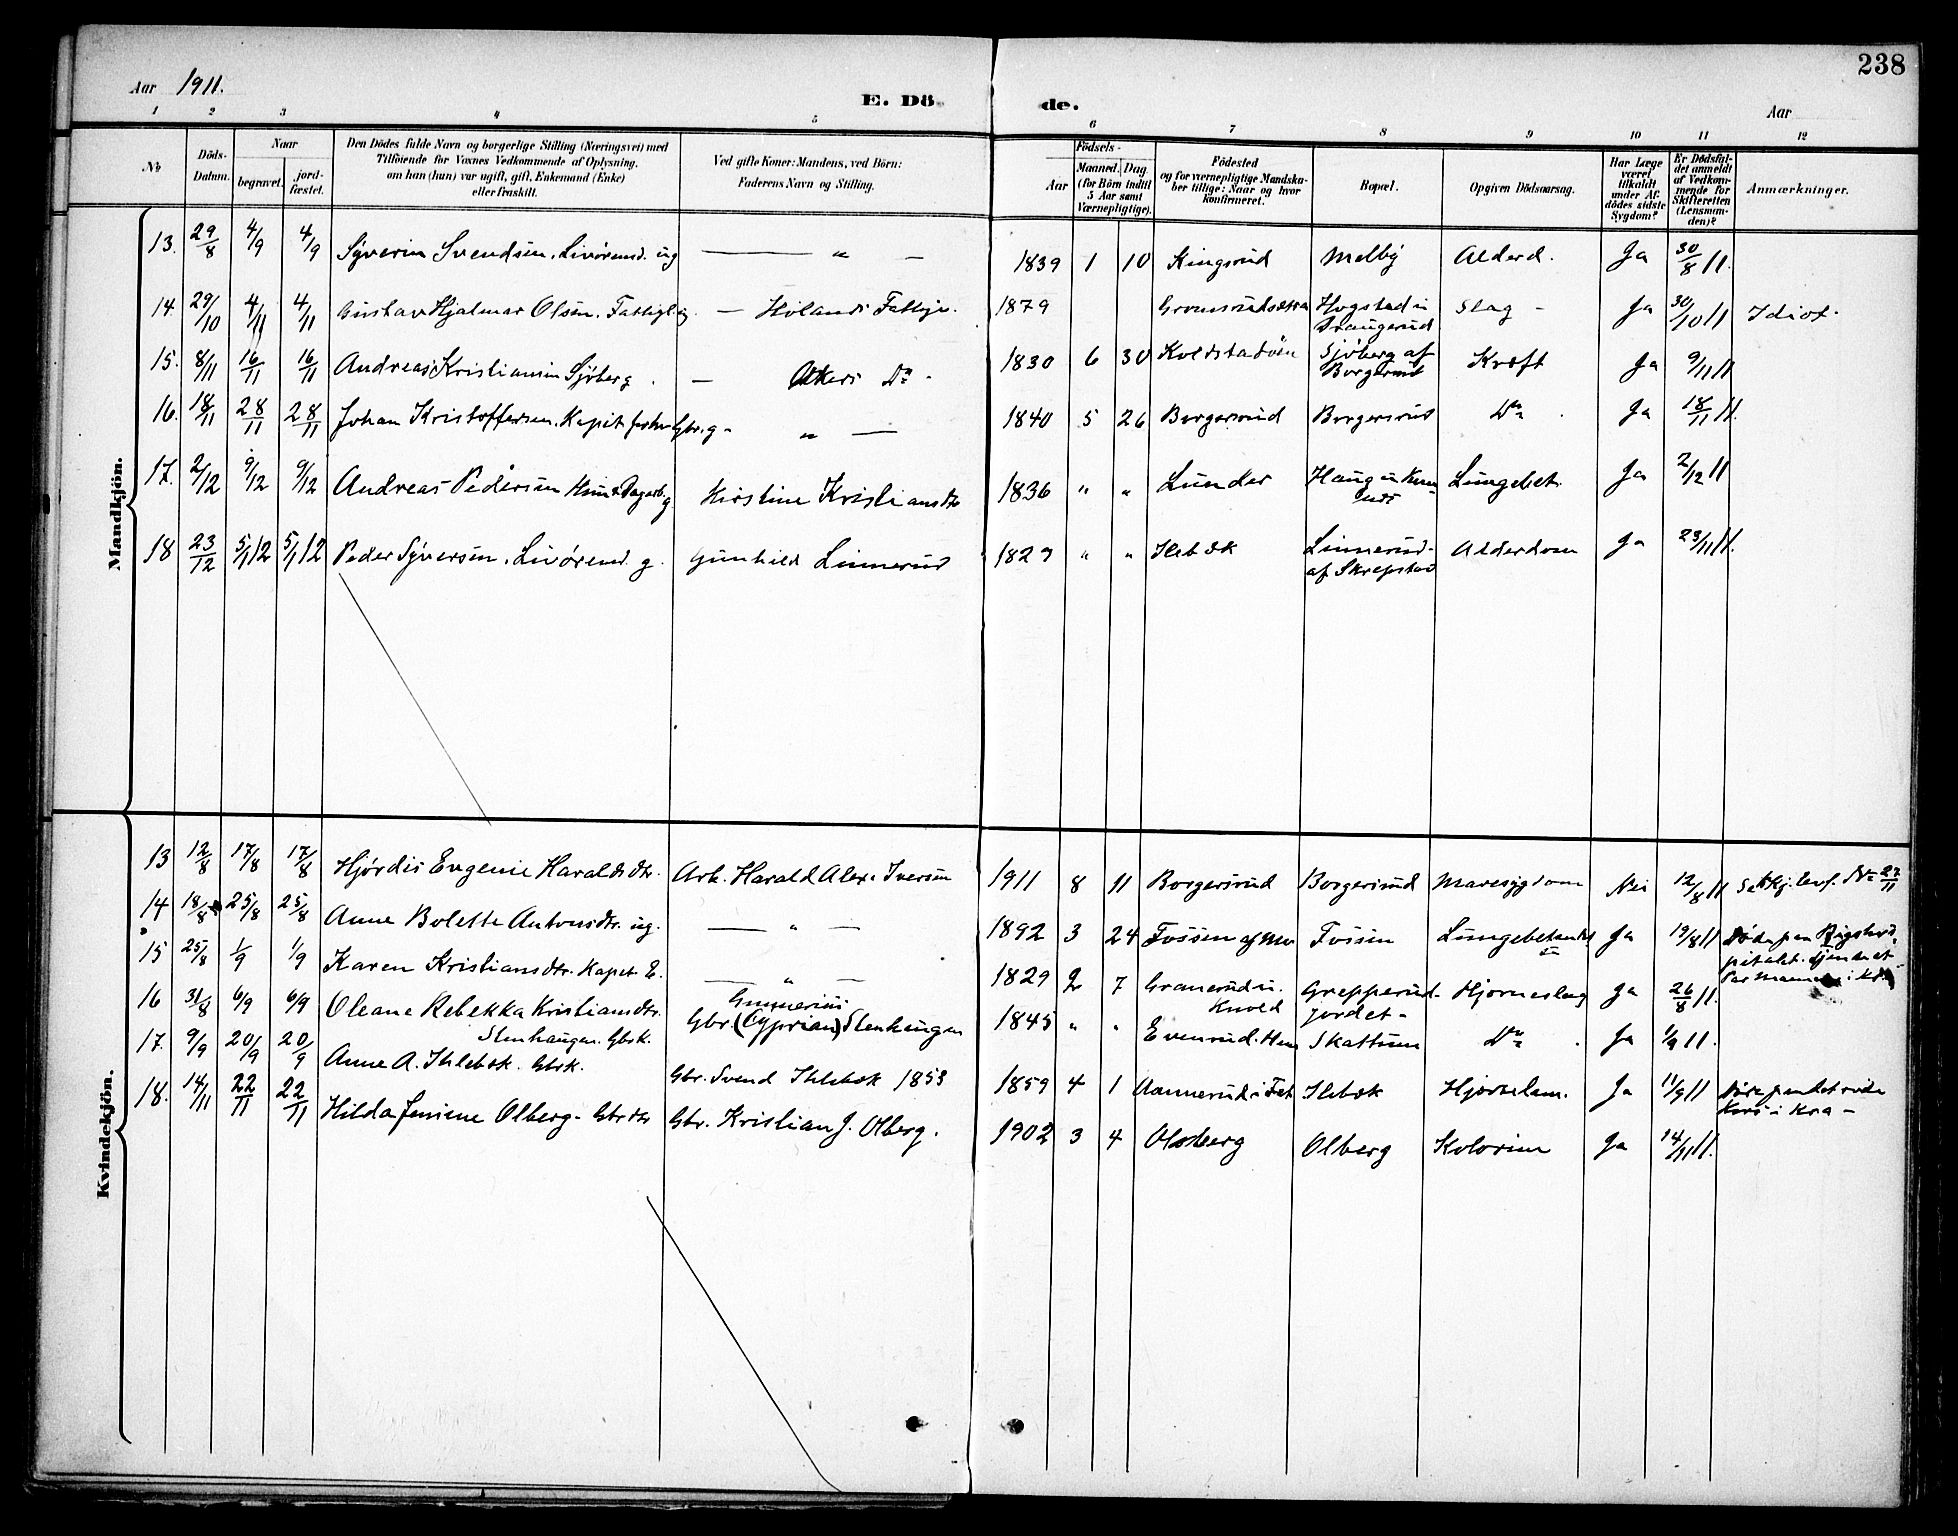 238
Aar 1911.
E. Dö de.
Aar
1 2 3 4 5 6 7 8 9 10 11 12
No
Döds-Datum.
Naar
begravet.
jord-fæstet.
Den Dödes fulde Navn og borgerlige Stilling (Næringsvei) med
Tilföiende for Voxnes Vedkommende af Oplysning,
om han (hun) var ugift, gift, Enkemand (Enke)
eller fraskilt.
Ved gifte Koner: Mandens, ved Börn:
Faderens Navn og Stilling.
Födsels-
Aar
Maaned. Dag.
(for Börn indtil
5 Aar samt
Værnepligtige).
Födested
og for værnepligtige Mandska-
ber tillige: Naar og hvor
konfirmeret.
Bopæl.
Opgiven Dödsaarsag.
Har Læge
været
tilkaldt
under Af-
dödes sidste
Sygdom?
Er Dödsfal-
det anmeldt
af Vedkom-
mende for
Skifteretten
(Lensman-
den)?
Anmærkninger.
Mandkjön.
13. 29/8 4/9 4/9 Syverin Svendsen. Livörend. ug — „ — 1839 1 10 Kingsrud Melby Alderd. Ja 30/8 11.
14 29/10 4/11 4/11 Gustav Hjalmar Olsen. Fattigl. ug. — Hölands Fattigv. 1879 Hogstad u Slag - Ja 30/10 11 Idiot.
15. 8/11 16/11 16/11 Andreas Kristiansen Sjöberg. — Akers Do - 1830 6 30 Koldstadöen Sjöberg af Borgerud Kræft Ja 9/11 11
16. 18/11 28/11 28/11 Johan Kristoffersen. Kapit. Gbr. g - „ — 1840 5 26 Borgersrud Borgersrud Do. Ja 18/11 11.
17. 2/12 9/12 9/12 Andreas Pedersen g Kirstine Kristiansdtr 1836 „ „ Lunder Haug u Lungebet. Ja 2/12 11
18 23/12 5/1 12 5/1 12 Peder Syversen. Livörend. g. Gunhild Linnerud 1829 „ „ Ilebæk Linnerud. af Skrepstad Alderdom Ja 23/11 11.
Kvindekjön.
13 12/8 17/8 17/8 Hjördis Eugenie Haraldsdtr. Arb. Harald Alex. Iversen 1911 8 11 Borgersrud Borgersrud Mavesygdom Nei 12/8 11
14 18/8 25/8 25/8 Anne Bolette Antonsdtr. ug. — „ — 1892 3 24 Fossen af Fossen Lungebetændelse Ja 19/8 11 Död paa Rigshos-
pitalet.
15 25/8 1/9 1/9 Karen Kristiansdtr. Kapit. E. — „ — 1829 2 7 Granerud u. Knold Grepperud-jordet - Hjerneslag Ja 26/8 11.
16 31/8 6/9 6/9 Oleane Rebekka Kristiansdtr. Stenhaugen. Gbrk. Gbr. Gunnerius (Cyprian) Stenhaugen 1845 „ „ Evenrud. Skattum Do. Ja 1/9 11.
17. 9/9 20/9 20/9 Anne A. Ihlebæk. Gbrk. Gbr. Svend Ihlebæk 1853 1859 4 1 Aannerud i Fet Ilebæk Hjertelam. Ja 11/9 11 Död paa det röde
Kors i Kra -
18. 14/11 22/11 22/11 Hilda Jenine Olberg - Gbrdtr Gbr. Kristian J. Olberg. 1902 3 4 Olberg Olberg Kolorin Ja 14/11 11.